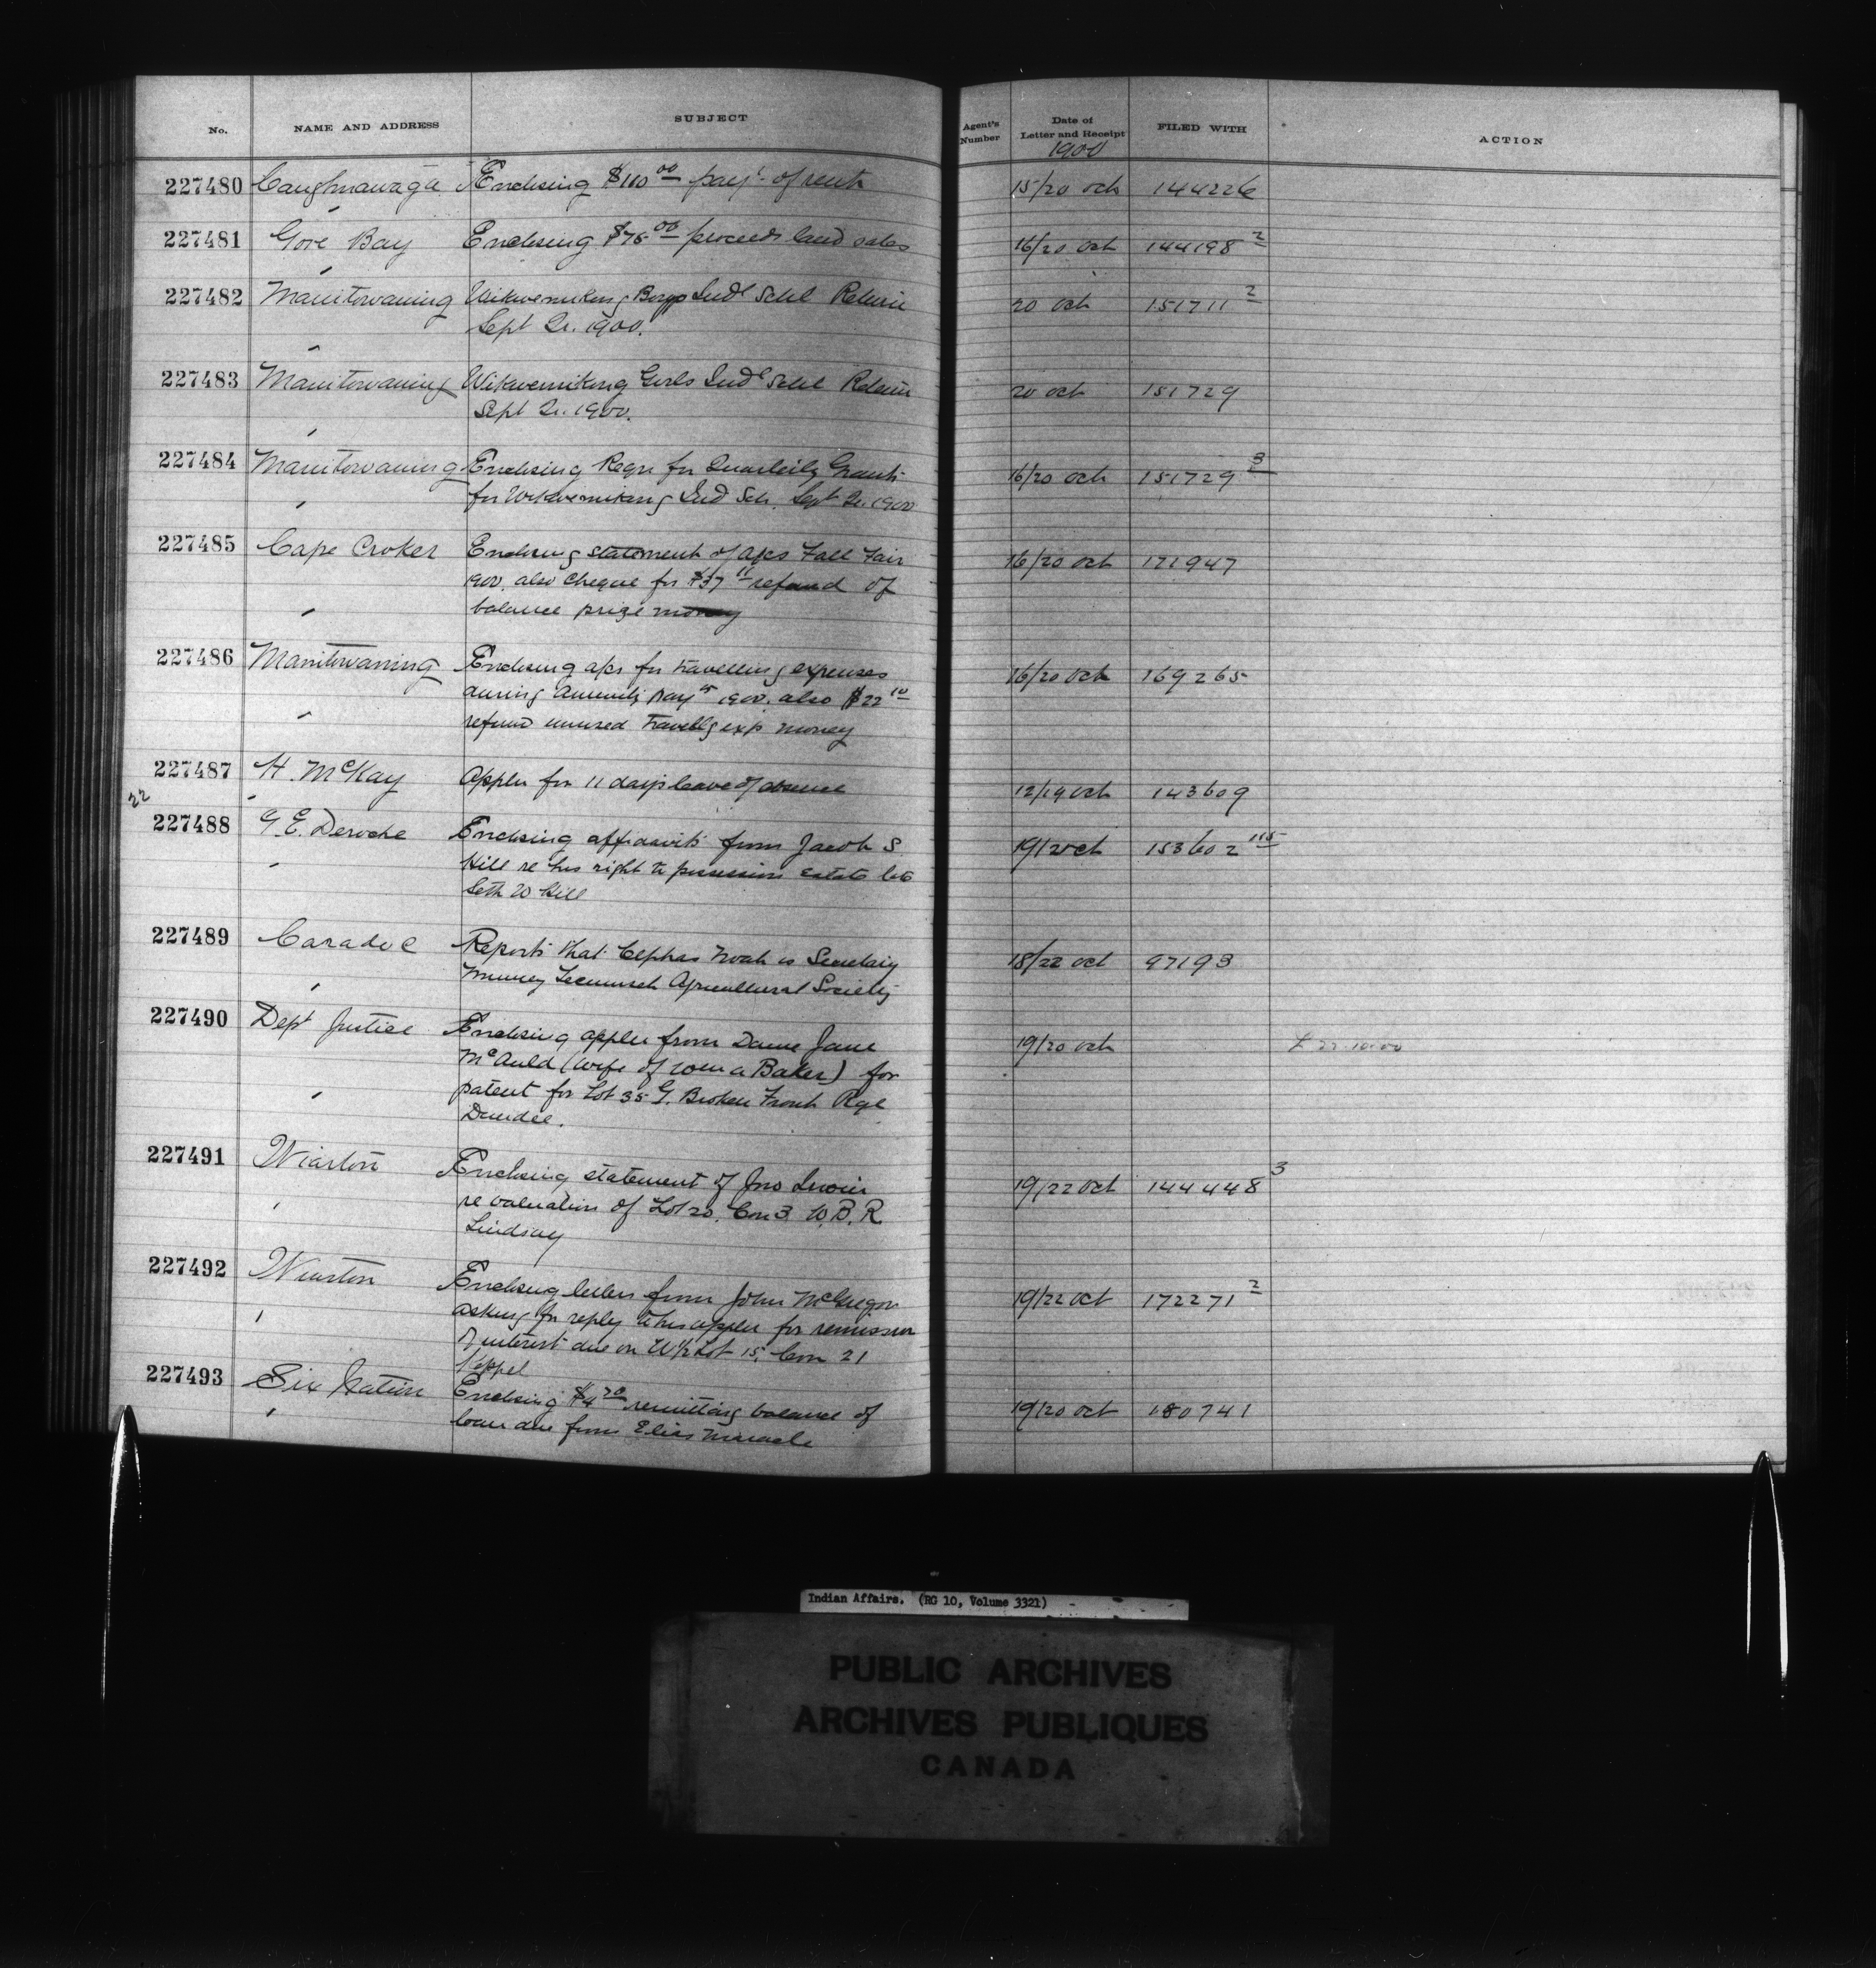 No. NAME AND ADDRESS SUBJECT Agent's Number Date of Letter and Receipt FILED WITH ACTION
1900
227480 Caughnawaga Enclosing $110 00 payt. of rent 15/20 Oct 144226
227481 Gore Bay Enclosing $75 00 proceeds land sales 16/20 Oct 144198 2
227482 Manitowaning Wikwemikong Boys Indl Schl Return 20 Oct 151711 2
Sept Qr. 1900.
227483 Manitowaning Wikwemikong Girls Indl Schl Return 20 Oct 151729
Sept Qr. 1900.
227484 Manitowaning Enclosing Reqn for Quarterly Grant 16/20 Oct 151729 3
for Wikwemikong Ind Sch. Sept Qr. 1900
227485 Cape Croker Enclosing statement of a/cs Fall Fair 16/20 Oct 171947
1900. also cheque for $37 11 refund of
balance prize money
227486 Manitowaning Enclosing a/cs for travelling expenses 16/20 Oct 169265
during Annuity Payts 1900. also $22 10
refund unused travellg exp money
227487 H. McKay Appln for 11 days leave of absence 12/19 Oct 143609
22
227488 G. E. Deroche Enclosing affidavits from Jacob S. 19/20 Oct 153602 115
Hill re his right to possession estate late
Seth W Hill
227489 Caradoc Reports that Cephas Noah is Secretary 18/22 Oct 97193
Muncey Tecumseh Agricultural Society
227490 Dept Justice Enclosing appln from Dame Jane 19/20 Oct
McAuld (wife of Wm A Baker) for
patent for Lot 35 G. Broken Front Rge
Dundee.
227491 Wiarton Enclosing statement of Jno 19/22 Oct 144448 3
re valuation of Lot 20. Con 3 W. B. R.
Lindsay
227492 Wiarton Enclosing letter from John McGregor 19/22 Oct 172271 2
asking for reply to his appln for remission
of interest due on W½ Lot 15, Con 21
Keppel
227493 Six Nation Enclosing $4 20 remitting balance of 19/20 Oct 180741
loan due from Elias Maracle
Indian Affairs. (RG 10, Volume 3321)
PUBLIC ARCHIVES
ARCHIVES PUBLIQUES
CANADA